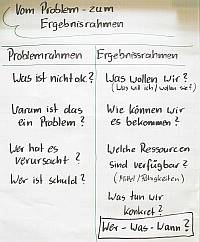 Vom Problem- zum
Ergebnisrahmen
Problemrahmen
Ergebnisrahmen
Was ist nicht ok?
Warum ist das
ein Problem?
Wer hat es
verursacht?
Wer ist schuld?
Was wollen wir?
(Was will ich / wollen sie?)
Wie können wir
es bekommen?
Welche Ressourcen
sind verfügbar?
(Mittel / Fähigkeiten)
Was tun wir
konkret?
Wer - Was - Wann?